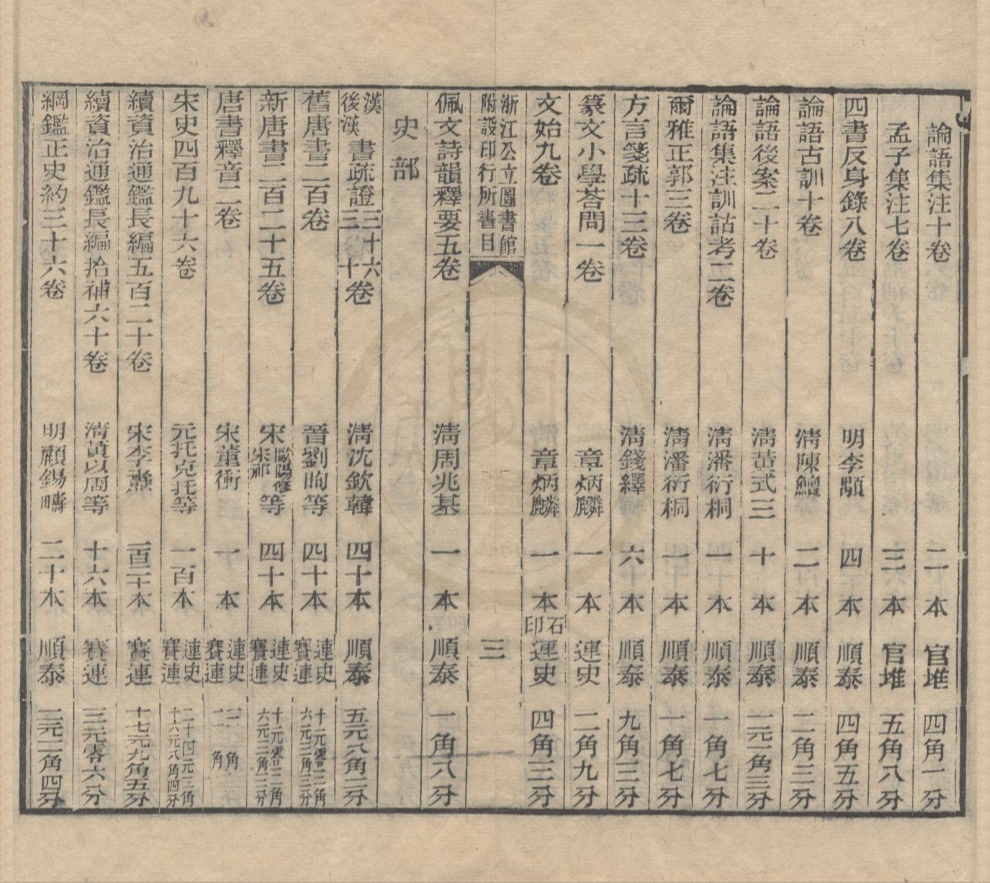 論語集注十卷 二本 官堆 四角一分
孟子集注七卷 三本 官堆 五角八分
四書反身錄八卷 明李顒 四本 順泰 四角五分
論語古訓十卷 清陳鱣 二本 順泰 二角三分
論語後案二十卷 清黃式三 十本 順泰 一元一角三分
論語集注訓詁考二卷 清潘衍桐 一本 順泰 一角七分
爾雅正郭三卷 清潘衍桐 一本 順泰 一角七分
方言箋疏十三卷 清錢繹 六本 順泰 九角三分
篆文小學荅問一卷 章炳麟 一本 連史 二角九分
文始九卷 章炳麟 一本 石印 連史 四角三分
浙江公立圖書館附設印行所書目 三
佩文詩韻釋要五卷 清周兆基 一本 順泰 一角八分
史部
漢後漢書疏證三十六三十卷 清沈欽韓 四十本 順泰 五元八角二分
舊唐書二百卷 晉劉昫等 四十本 連史賽連
新唐書二百二十五卷 宋歐陽修宋祁等 四十本 連史賽連
唐書釋音二卷 宋董衝 一本 連史賽連
宋史四百九十六卷 元托克托等 一百本 連史賽連 二十四元二角十六元八角四分
續資治通鑑長編五百二十卷 宋李燾 一百二十本 賽連 十七元九角五分
續資治通鑑長編拾補六十卷 清黃以周等 十六本 賽連 三元零六分
綱鑑正史約三十六卷 明顧錫疇 二十本 順泰 二元二角四分